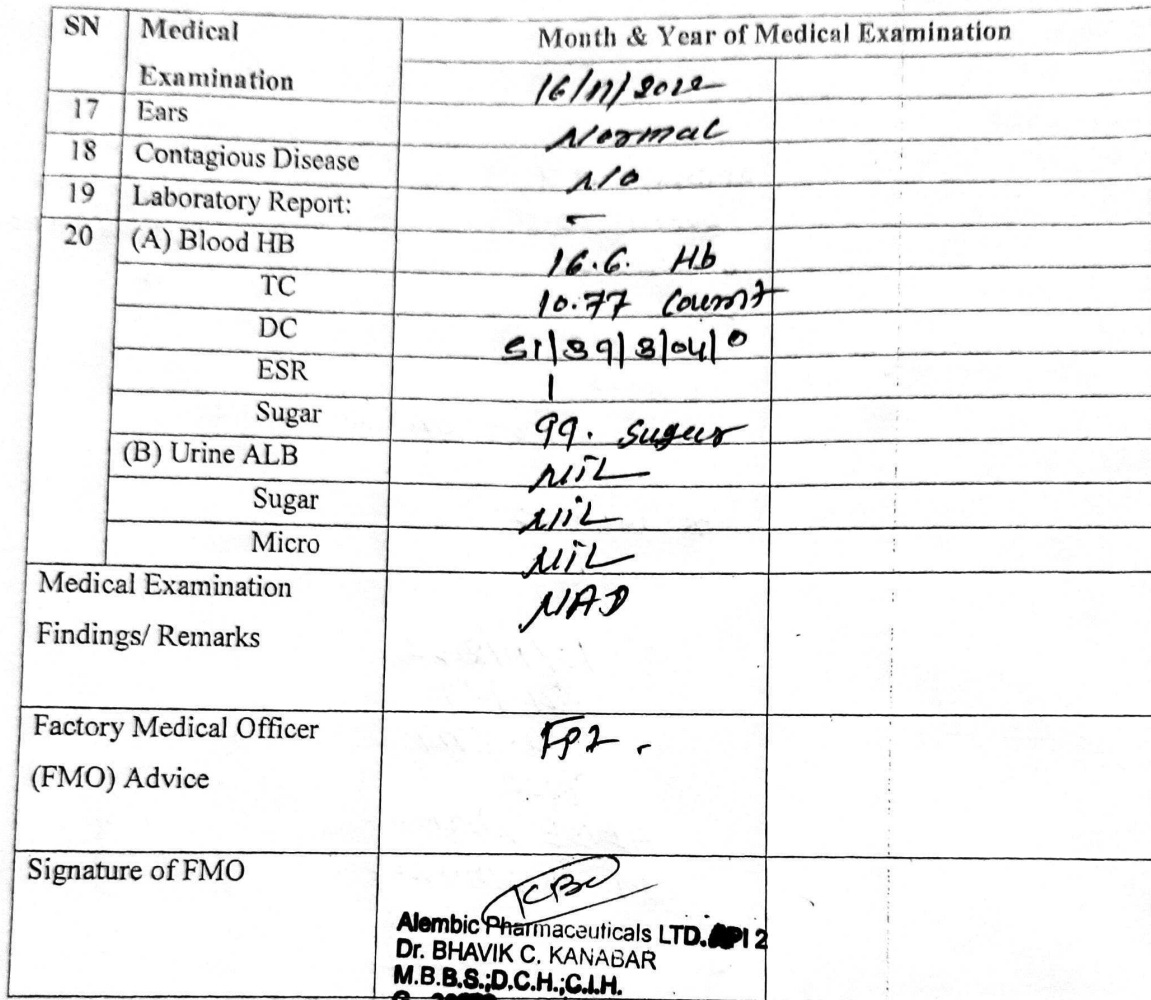 SN Medical Examination Month & Year of Medical Examination
16/11/2022
17 Ears Normal
18 Contagious Disease N/O
19 Laboratory Report: -
20 (A) Blood HB 16.6. Hb
TC 10.77 Count
DC 51|39|3|04|0
ESR 1
Sugar 99. Sugar
(B) Urine ALB NIL
Sugar NIL
Micro NIL
Medical Examination NAD
Findings/ Remarks
Factory Medical Officer
(FMO) Advice
Signature of FMO
Alembic Pharmaceuticals LTD. API 2
Dr. BHAVIK C. KANABAR
M.B.B.S.;D.C.H.;C.I.H.